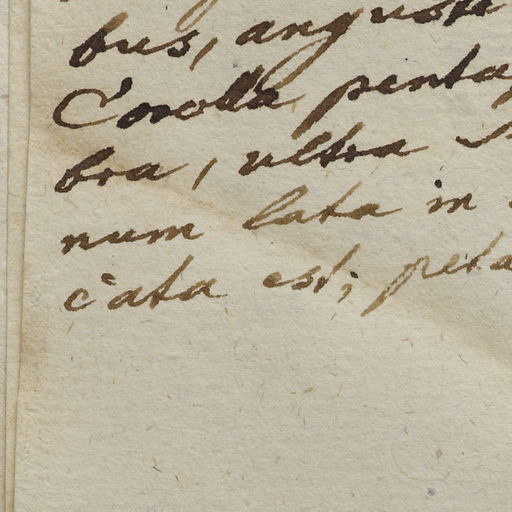 bus, angusti
Corolla penta
bra, ultra
num lata in
cata est, peta